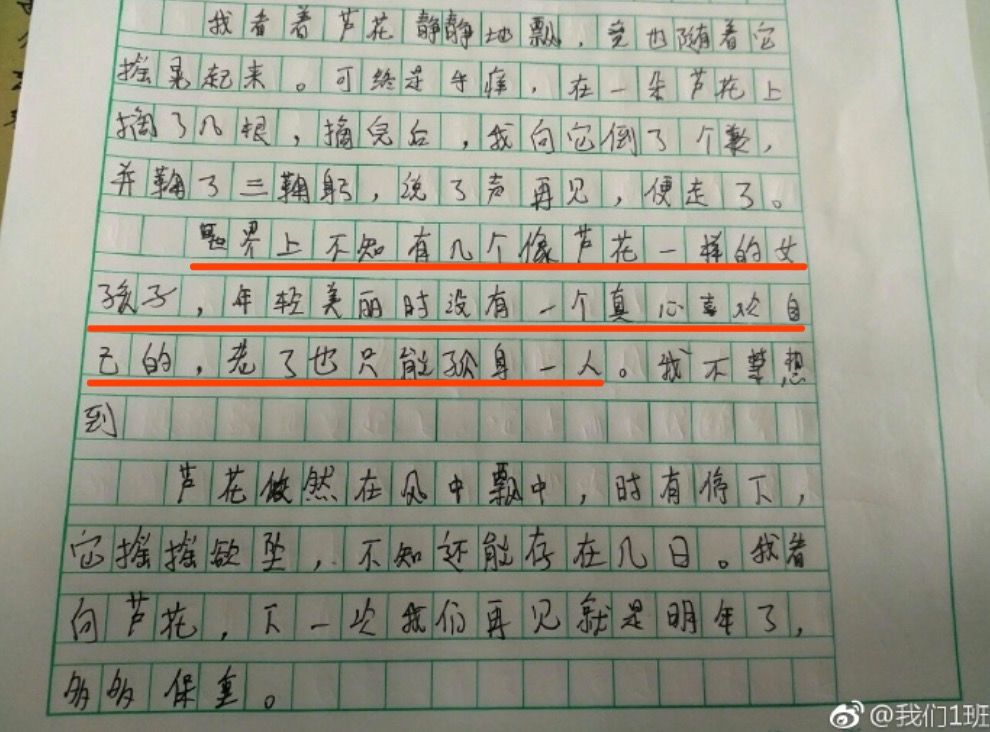 我看着芦花静静地飘，竟也随着它
摇晃起来。可终是手痒，在一朵芦花上
摘了几根，摘完后，我向它倒了个歉，
并鞠了三鞠躬，说了声再见，便走了。
世界上不知有几个像芦花一样的女
孩子，年轻美丽时没有一个真心喜欢自
己的，老了也只能孤身一人。我不禁想
到
芦花悠然在风中飘中，时有停下，
它摇摇欲坠，不知还能存在几日。我看
向芦花，下一次我们再见就是明年了，
多多保重。
@我们1班